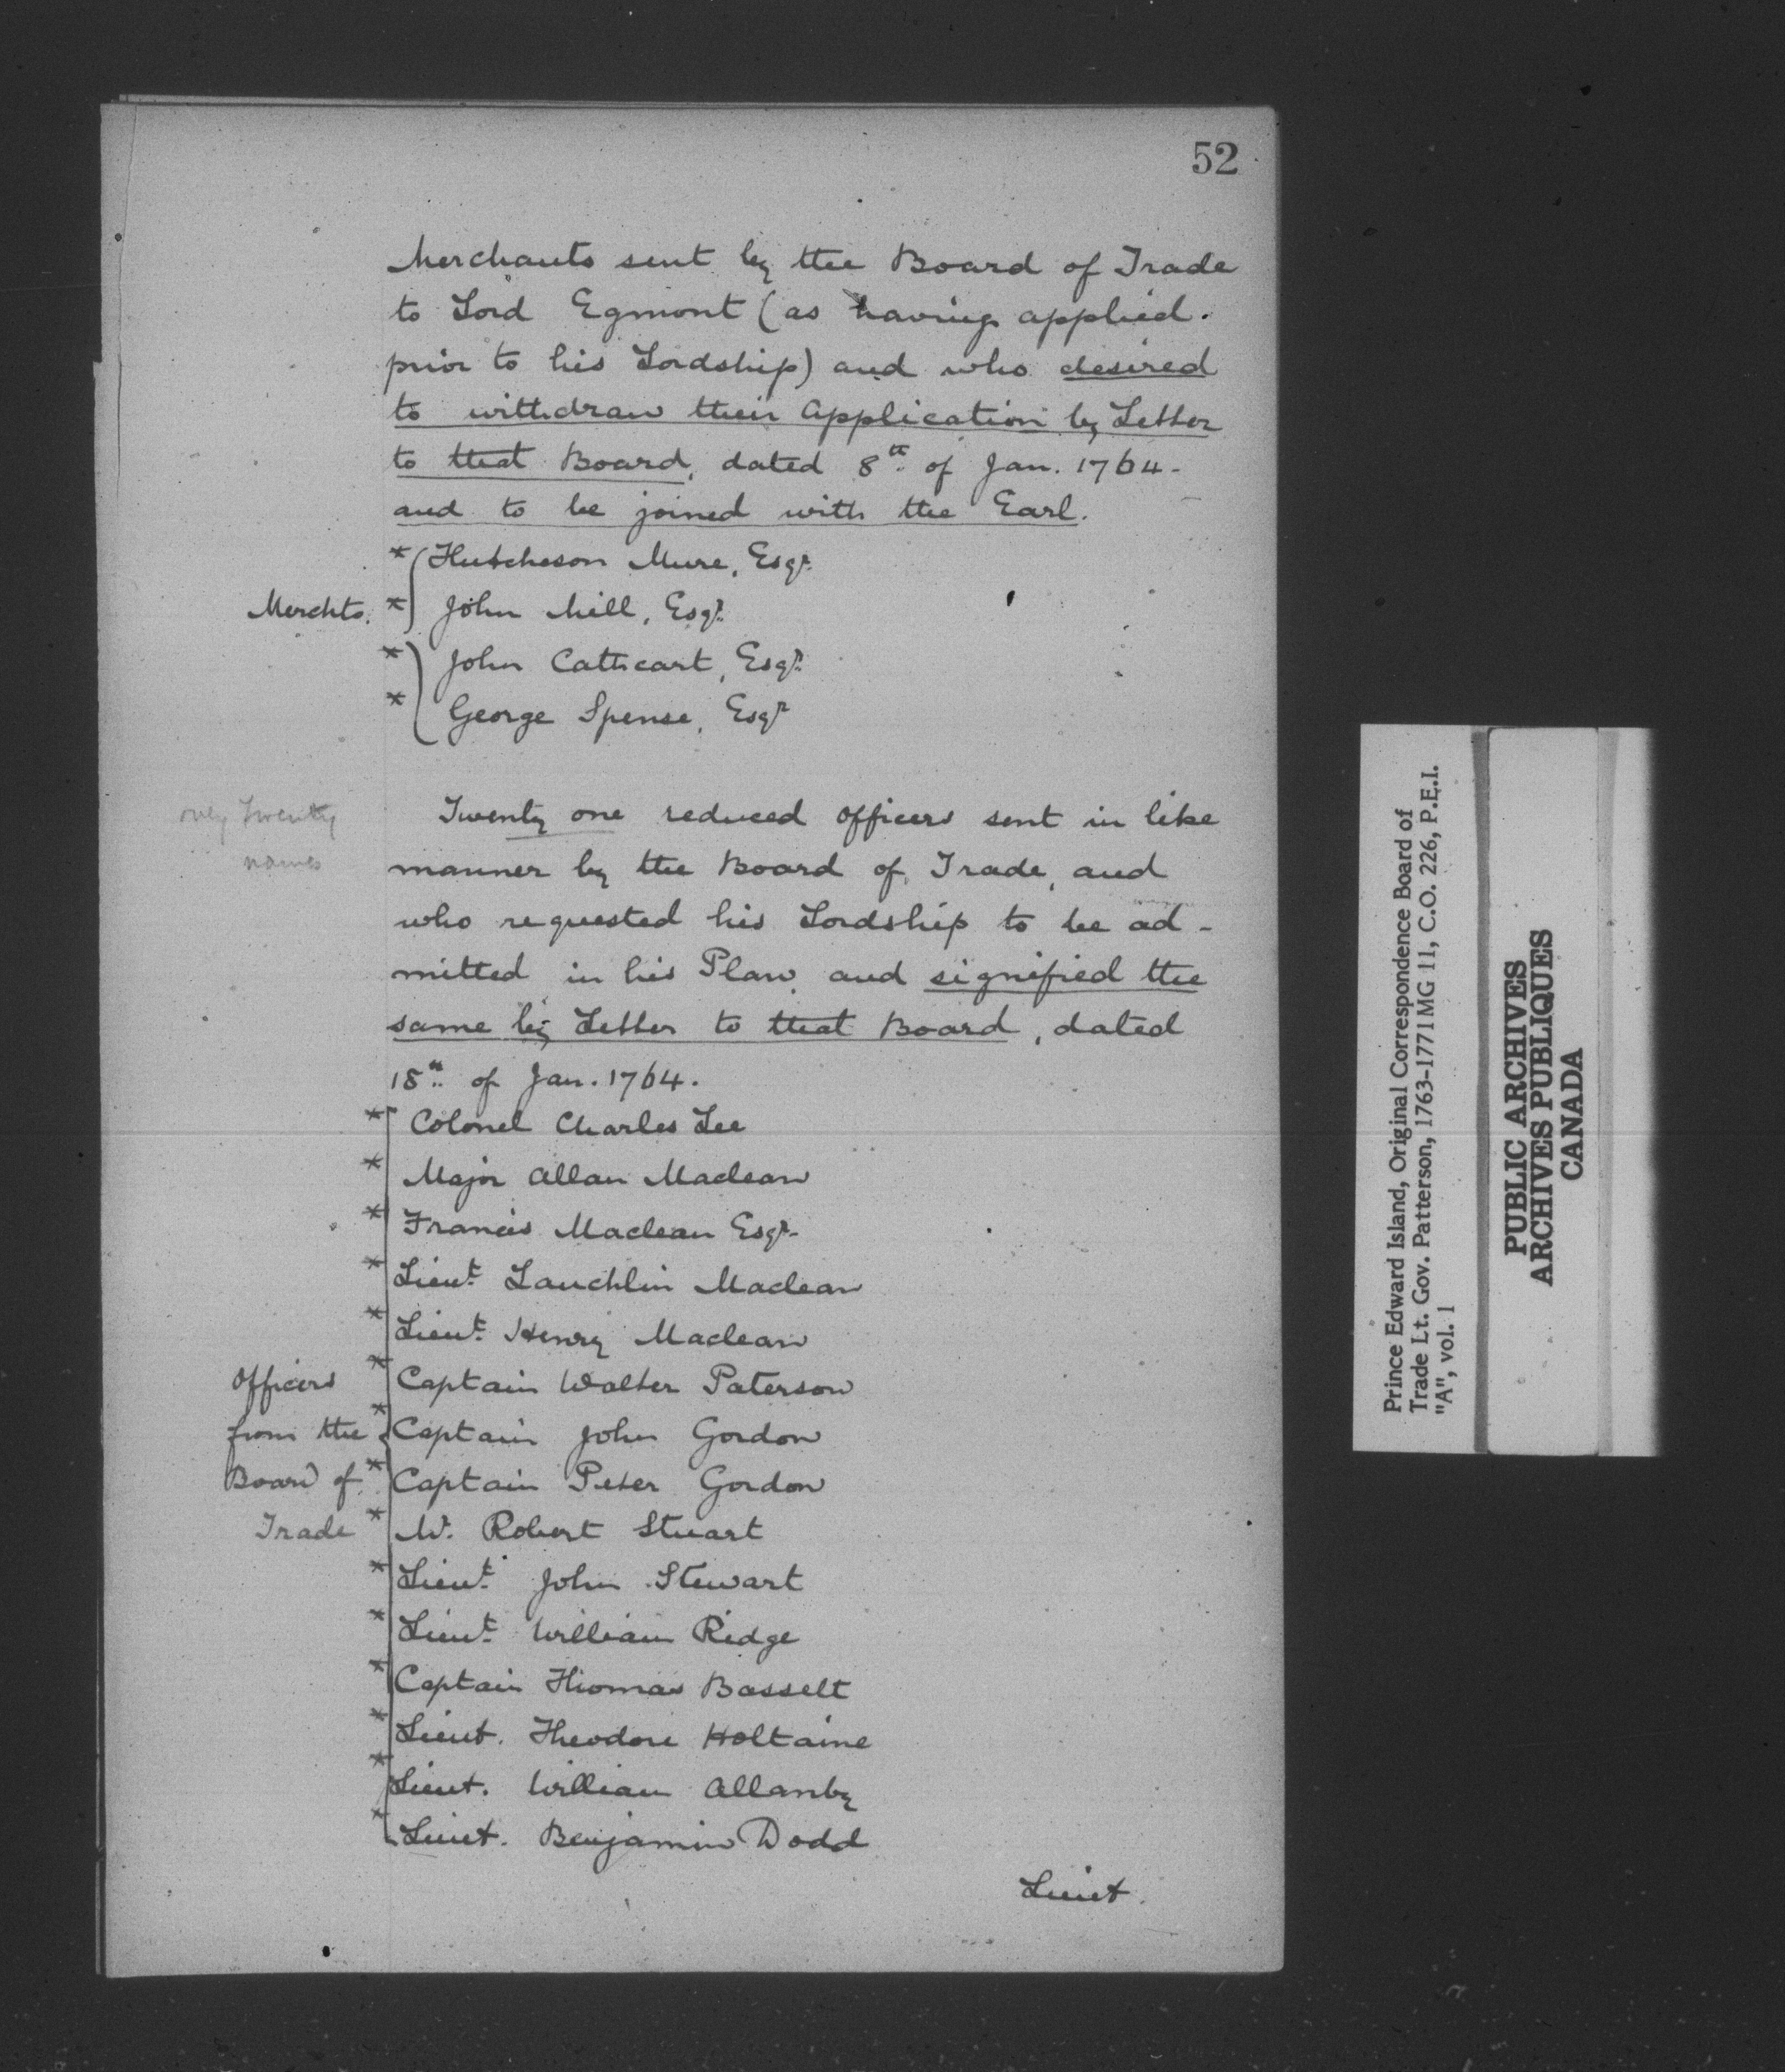 52
Merchants sent by the Board of Trade
to Lord Egmont (as having applied.
prior to his Lordship) and who desired
to withdraw their application by Letter
to that Board, dated 8th of Jan. 1764-
and to be joined with the Earl.
* Hutcheson Mure, Esqr.
Merchts. * John Mill, Esqr.
* John Cathcart, Esqr.
* George Spense, Esqr
only twenty
names
Twenty one reduced officers sent in like
manner by the Board of Trade, and
who requested his Lordship to be ad-
mitted in his Plan, and signified the
same by Letter to that Board, dated
18th of Jan. 1764.
* Colonel Charles Lee
* Major Allan Maclean
* Francis Maclean Esqr.
* Lieut. Lauchlin Maclean
* Lieut. Henry Maclean
Officers * Captain Walter Paterson
from the * Captain John Gordon
Board of * Captain Peter Gordon
Trade * Mr. Robert Stuart
* Lieut. John Stewart
* Lieut. William Ridge
* Captain Thomas Bassett
* Lieut. Theodore Holtaine
* Lieut. William Allanby
* Lieut. Benjamin Dodd
Lieut.
Prince Edward Island, Original Correspondence Board of
Trade Lt. Gov. Patterson, 1763-1771 MG 11, C.O. 226, P.E.I.
"A", vol. 1
PUBLIC ARCHIVES
ARCHIVES PUBLIQUES
CANADA